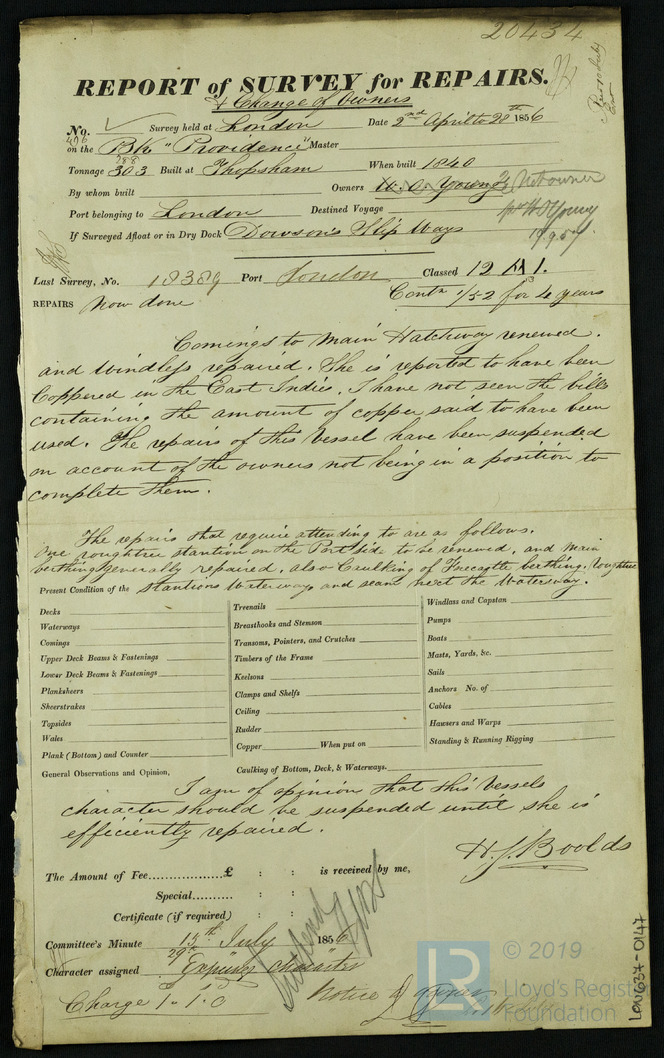 20434
REPORT of SURVEY for REPAIRS.
& Change of Owners
No. 496 Survey held at London Date 2nd April to 28th 1856
on the Bk "Providence" Master
Tonnage 288 303 Built at Thopsham When built 1840
By whom built Owners W. O. Young Not owner
Port belonging to London Destined Voyage W O Young
If Surveyed Afloat or in Dry Dock Dowson's Slip Ways
Last Survey, No. 18389 Port London Classed 12 A 1.
REPAIRS now done Contd 1/52 for 4 years
Comings to Main Hatchway renewed.
and Windlass repaired. She is reported to have been
Coppered in the East Indies. I have not seen the bills
containing the amount of copper said to have been
used. The repairs of this Vessel have been suspended
on account of the owners not being in a position to
complete them.
The repairs that require attending to are as follows.
One roughtree stantion on the Port side to be renewed, and main
berthing generally repaired, also Caulking of Forecastle berthing, Roughtree
Present Condition of the stantions Waterway and seam next the Waterway.
Decks
Waterways
Comings
Upper Deck Beams & Fastenings
Lower Deck Beams & Fastenings
Planksheers
Sheerstrakes
Topsides
Wales
Plank (Bottom) and Counter
Treenails
Breasthooks and Stemson
Transoms, Pointers, and Crutches
Timbers of the Frame
Keelsons
Clamps and Shelfs
Ceiling
Rudder
Copper When put on
Windlass and Capstan
Pumps
Boats
Masts, Yards, &c.
Sails
Anchors No. of
Cables
Hawsers and Warps
Standing & Running Rigging
General Observations and Opinion, Caulking of Bottom, Deck, & Waterways.
I am of opinion that this Vessels
character should be suspended until she is
efficiently repaired.
H. J. Boolds
The Amount of Fee £ : : is received by me,
Special : :
Certificate (if required) : :
Committee's Minute 15th July 1856
29th
Character assigned Expunge character
Suspend
Charge 1. 1. 0
Notice
LR
© 2019
Lloyd's Register
Foundation
LON637-0147